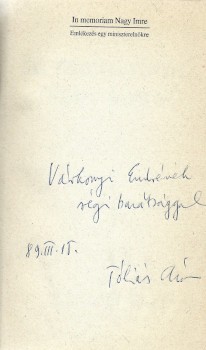 In memoriam Nagy Imre
Emlékezés egy miniszterelnökre
Várkonyi Endrének
régi barátsággal
89. III. 15.
Tóbiás Áron